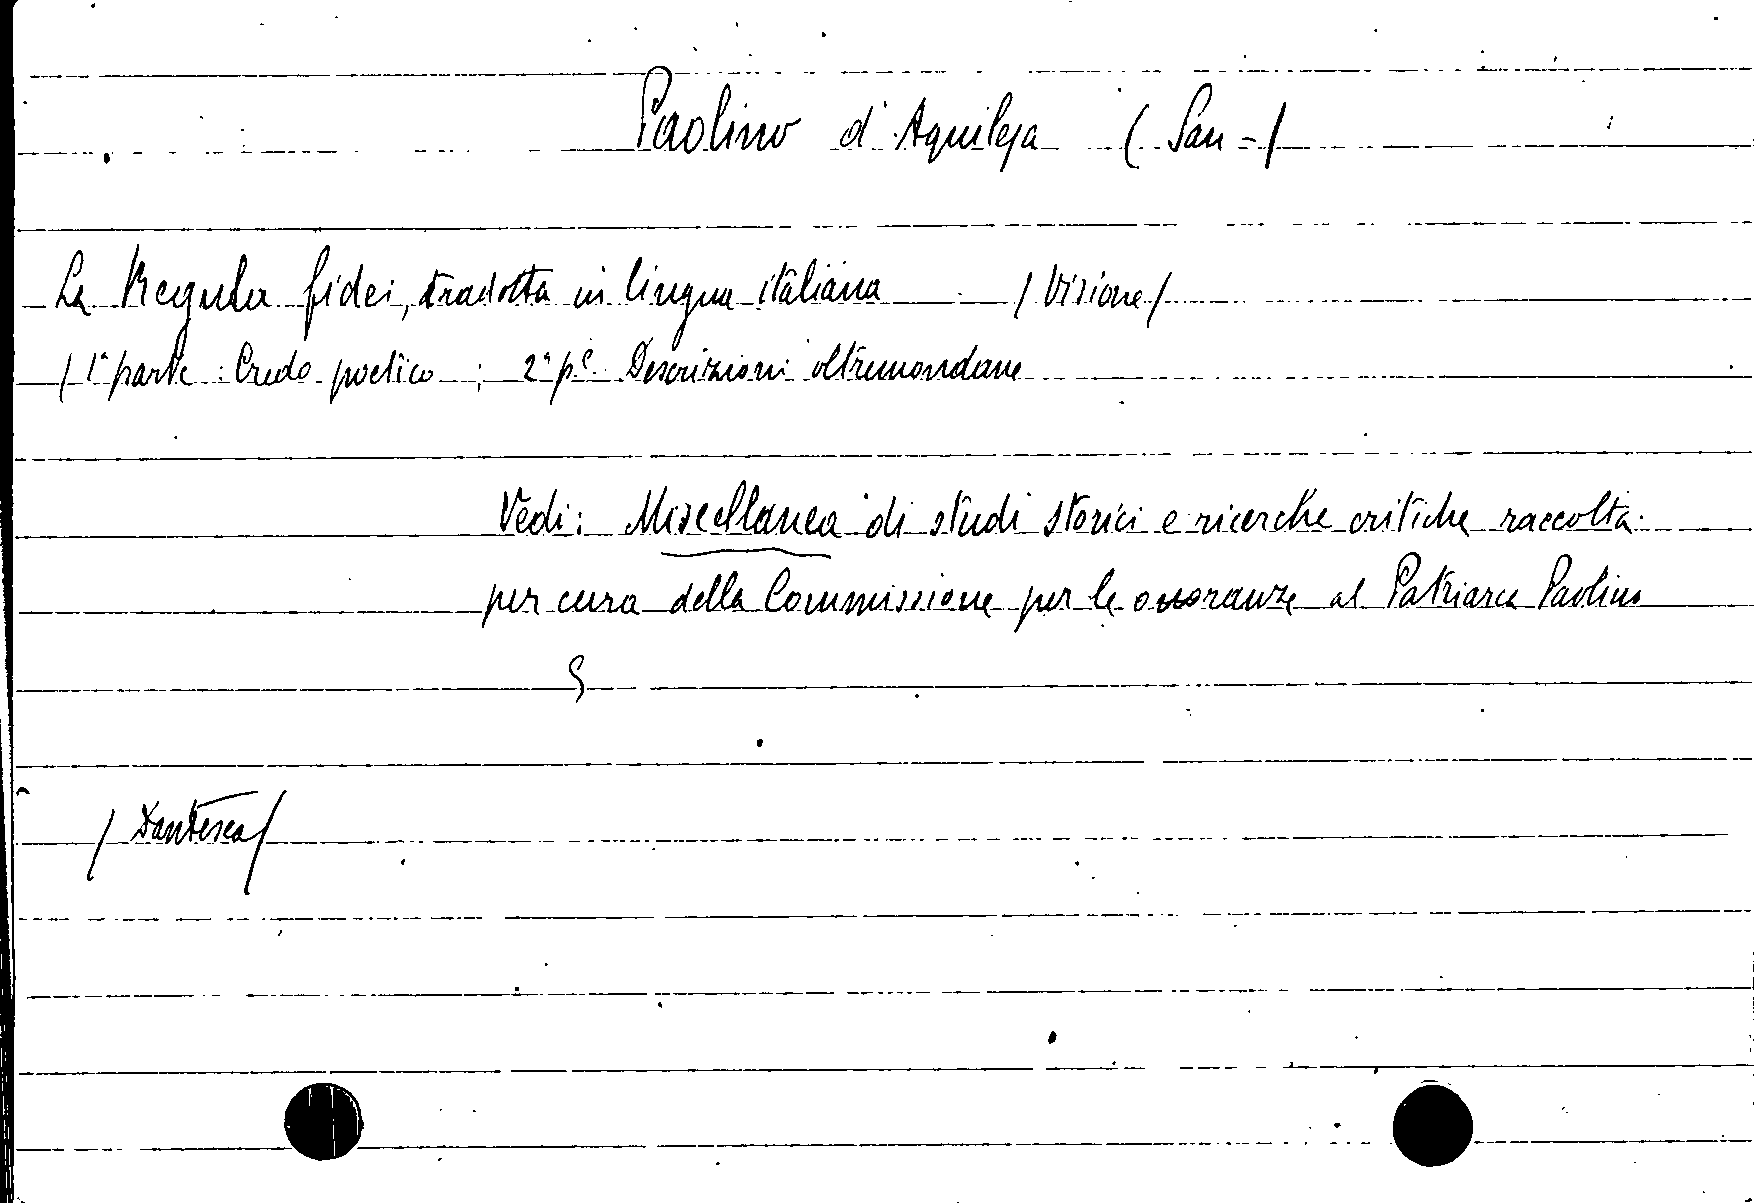 Paolino d'Aquileja (San-/
La Regula fidei, tradotta in lingua italiana /Visione/
/1ª parte: Credo poetico; 2ª pe. Descrizioni oltremondane
Vedi: Miscellanea di studi storici e ricerche critiche raccolta
per cura della Commissione per le onoranze al Patriarca Paolino
/Dantesca/